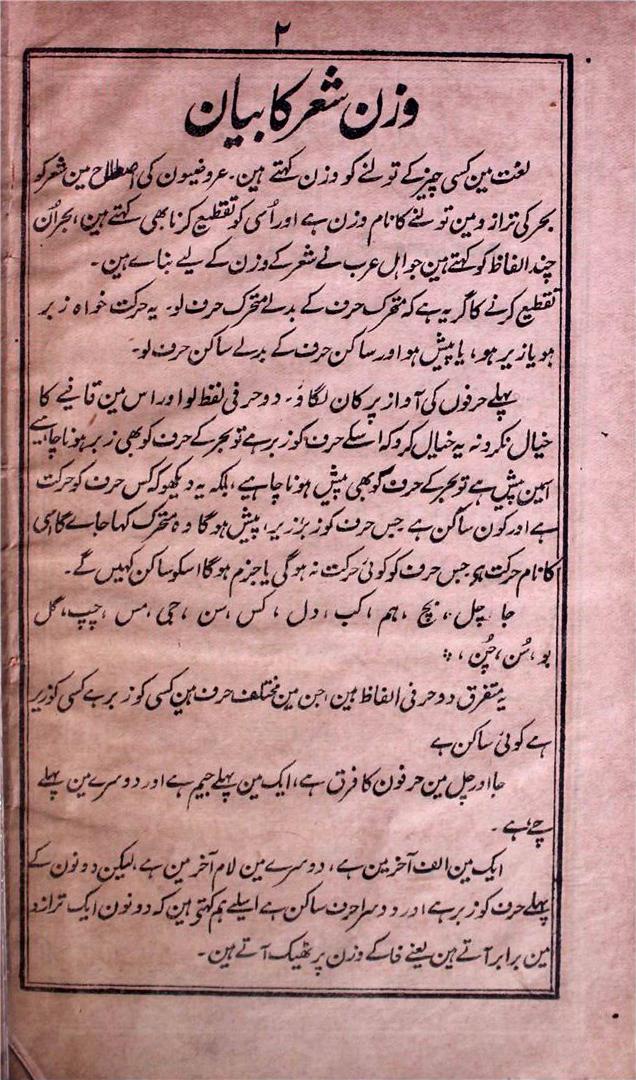 ۲
وزن شعر کا بیان
لغت مین کسی چیز کے تولنے کو وزن کہتے ہین۔ عروضیون کی اصطلاح مین شعر کو
بحر کی ترازو مین تولنے کا نام وزن ہے اور اُسی کو تقطیع کرنا بھی کہتے ہین، بحر اُن
چند الفاظ کو کہتے ہین جو اہل عرب نے شعر کے وزن کے لیے بناے ہین۔
تقطیع کرنے کا گر یہ ہے کہ متحرک حرف کے بدلے متحرک حرف لو۔ یہ حرکت خواہ زبر
ہو یا زیر ہو، یا پیش ہو اور ساکن حرف کے بدلے ساکن حرف لو۔
پہلے حرفوں کی آواز پر کان لگاؤ۔ دو حرفی لفظ لو اور اس مین قافیے کا
خیال نکرو نہ یہ خیال کرو کہ اسکے حرف کو زبر ہے تو بحر کے حرف کو بھی زبر ہونا چاہیے
اسمین پیش ہے تو بحر کے حرف کو بھی پیش ہونا چاہیے، بلکہ یہ دیکھو کہ کس حرف کو حرکت
ہے اور کون ساکن ہے جس حرف کو زبر، زیر، پیش ہوگا وہ متحرک کہا جاے گا اسی
کا نام حرکت ہے جس حرف کو کوئی حرکت نہ ہوگی یا جزم ہوگا اسکو ساکن کہیں گے۔
جا، چل، بچ، ہم، کب، دل، کس، سن، جی، مس، چپ، گل
بو، سُن، چُن،
یہ متفرق دو حرفی الفاظ ہین، جن مین مختلف حرف ہین کسی کو زبر ہے کسی کو زیر
ہے کوئی ساکن ہے
جا اور چل مین حرفون کا فرق ہے، ایک مین پہلے جیم ہے اور دوسرے مین پہلے
چے ہے۔
ایک مین الف آخر مین ہے، دوسرے مین لام آخر مین ہے، لیکن دونون کے
پہلے حرف کو زبر ہے اور دوسرا حرف ساکن ہے اسلیے ہم کہتی ہین کہ دونون ایک ترازو
مین برابر آتے ہین یعنے فا کے وزن پر ٹھیک آتے ہین۔